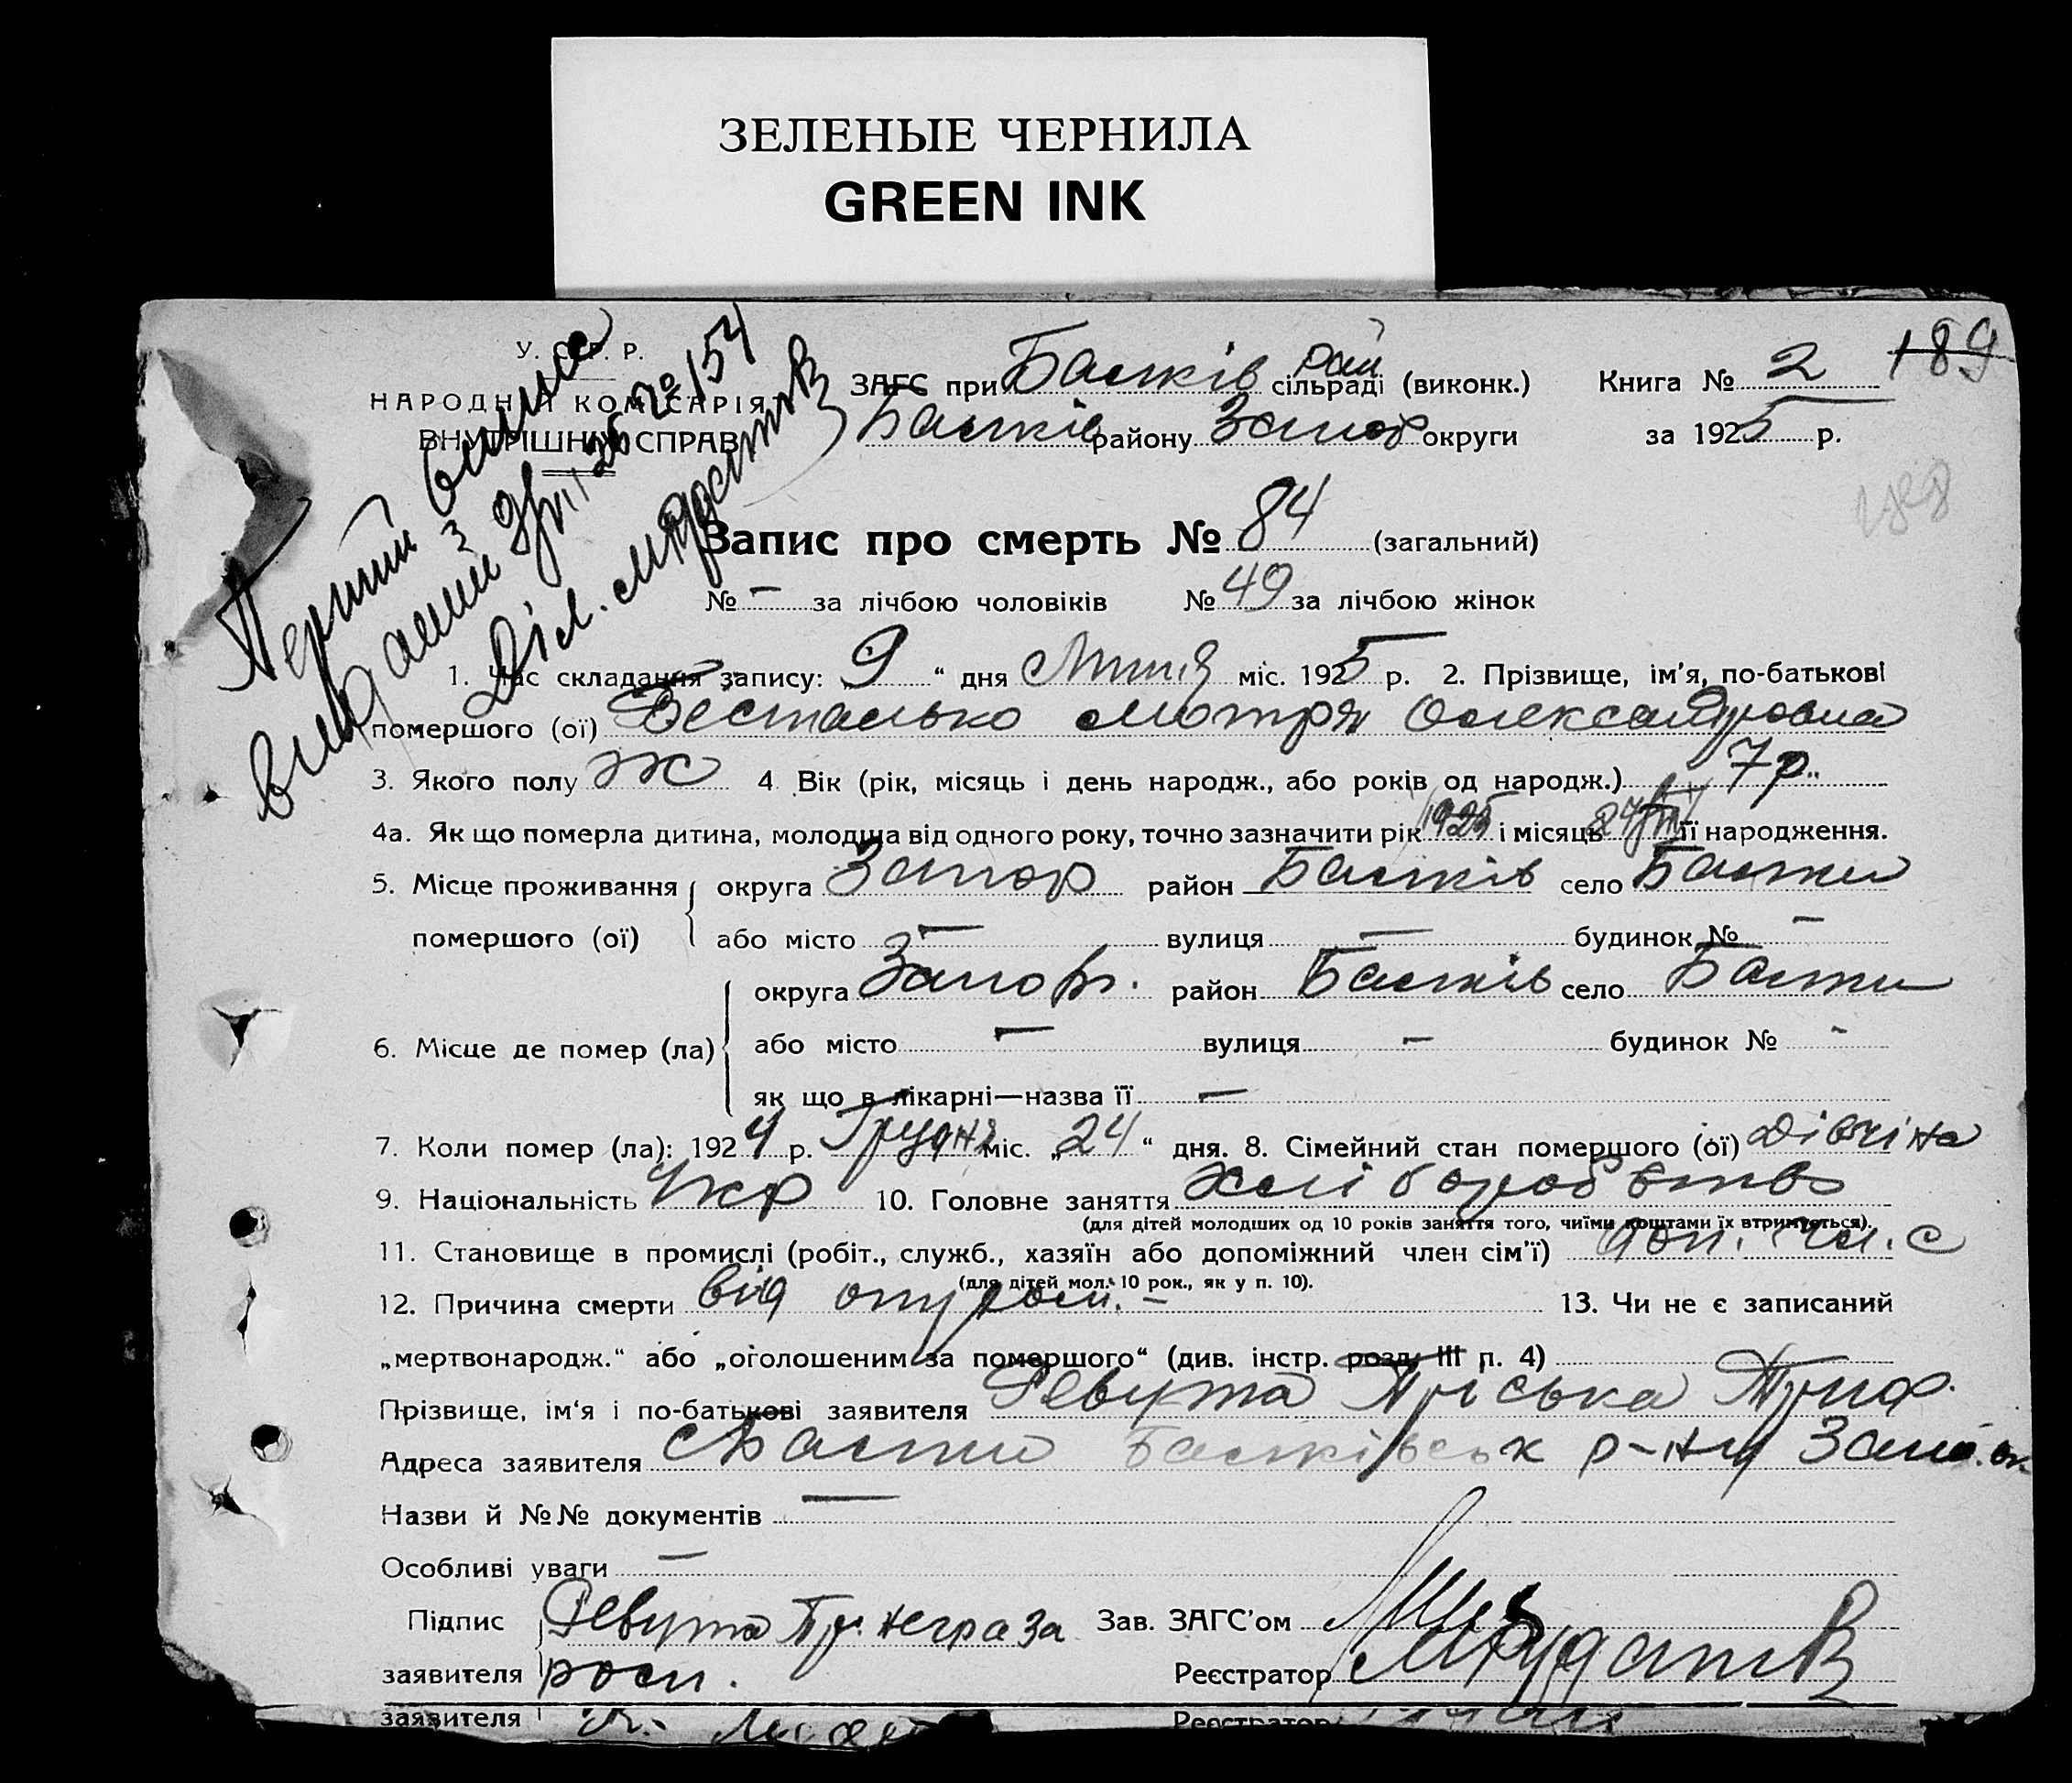 ЗЕЛЕНЫЕ ЧЕРНИЛА
GREEN INK
У. С. Р. Р.
НАРОДНІЙ КОМІСАРІЯТ
ВНУТРІШНІХ СПРАВ
ЗАГС при Балків рай сільраді (виконк.)
Балків району Запор округи
Книга № 2
за 1925 р.
189
Перший випис
виданий з № 154
Запис про смерть № 84 (загальний)
№ — за лічбою чоловіків № 49 за лічбою жінок
1. Час складання запису: „ 9 “ дня Липня міс. 1925 р. 2. Прізвище, ім'я, по-батькові
помершого (ої) Мотря Олександровна
3. Якого полу ж 4 Вік (рік, місяць і день народж., або років од народж.) 7 р.
4а. Як що померла дитина, молодша від одного року, точно зазначити рік 1925 і місяць її народження.
5. Місце проживання помершого (ої) округа Запор район Балків село Балки
або місто — вулиця — будинок № —
6. Місце де помер (ла) округа Запор. район Балків село Балки
або місто — вулиця — будинок № -
як що в лікарні—назва її —
7. Коли помер (ла): 1924 р. Грудня міс. „ 24 “ дня. 8. Сімейний стан помершого (ої) дівчіна
9. Національність Укр 10. Головне заняття хліборобство
(для дітей молодших од 10 років заняття того, чиїми коштами їх втримується).
11. Становище в промислі (робіт., служб., хазяїн або допоміжний член сім'ї) доп. чл. с
(для дітей мол. 10 рок., як у п. 10).
12. Причина смерти від — 13. Чи не є записаний
„мертвонародж.“ або „оголошеним за помершого“ (див. інстр. розд. III п. 4)
Прізвище, ім'я і по-батькові заявителя Ревута Пріська Триф.
Адреса заявителя с Балки Балківськ р-ну Запо. ок.
Назви й №№ документів —
Особливі уваги —
Підпис заявителя Ревута Пр. неграза
росп.
Зав. ЗАГС'ом
Реєстратор
заявителя
Реєстратор